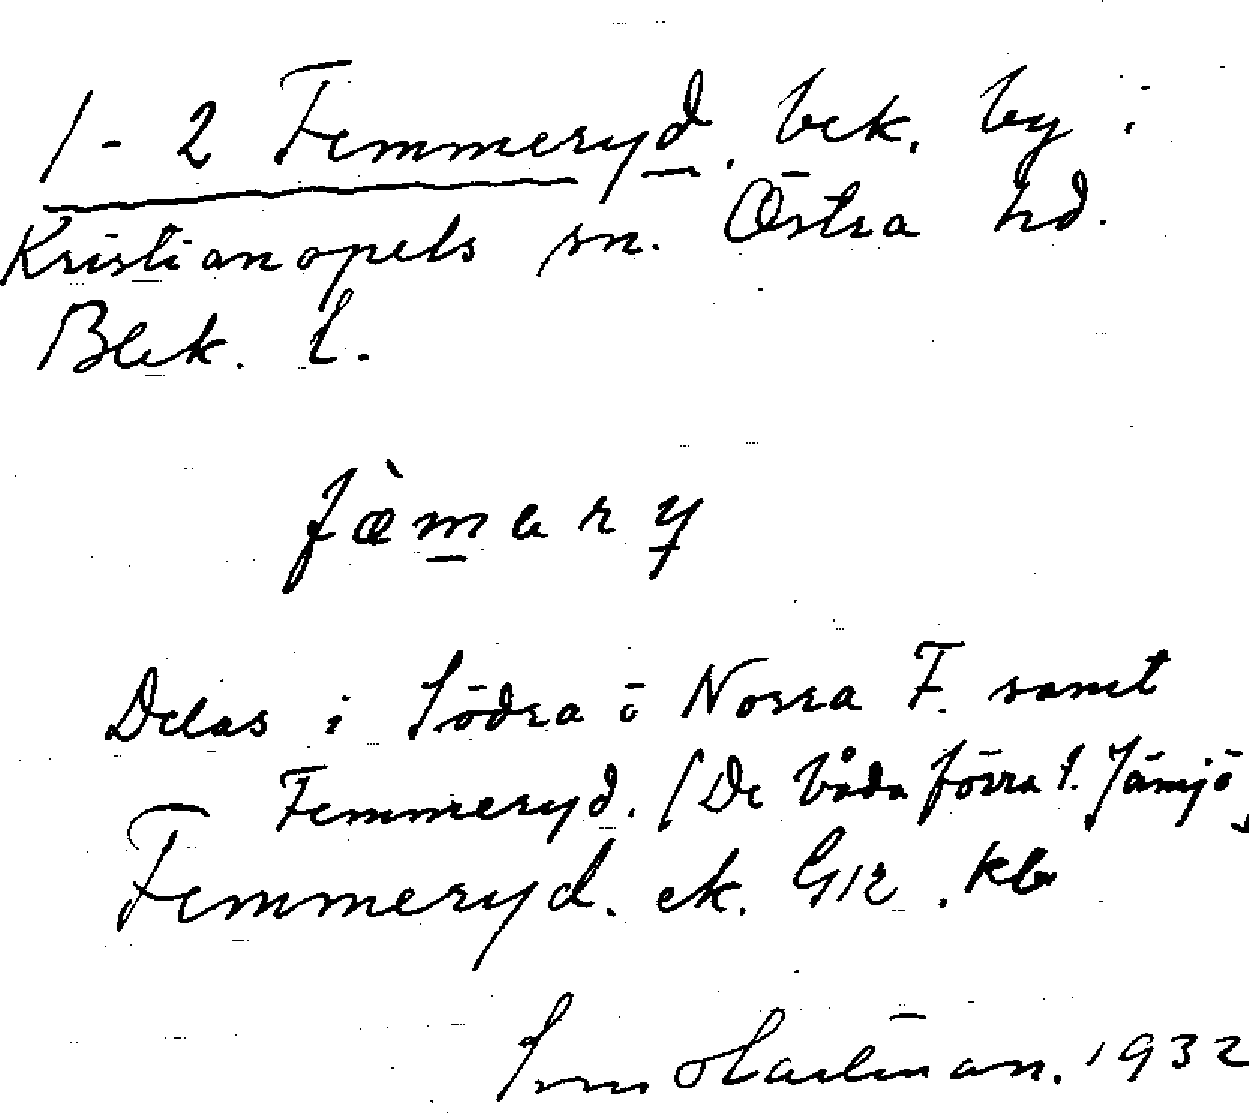 1-2 Femmeryd. bek. by i
Kristianopels sn. Östra hd.
Blek. l.
fæ̀mary
Delas i Södra o Norra F. samt
Femmeryd. (De båda förra t. Jämjö,
Femmeryd. ek. G12. kb
Hartman. 1932